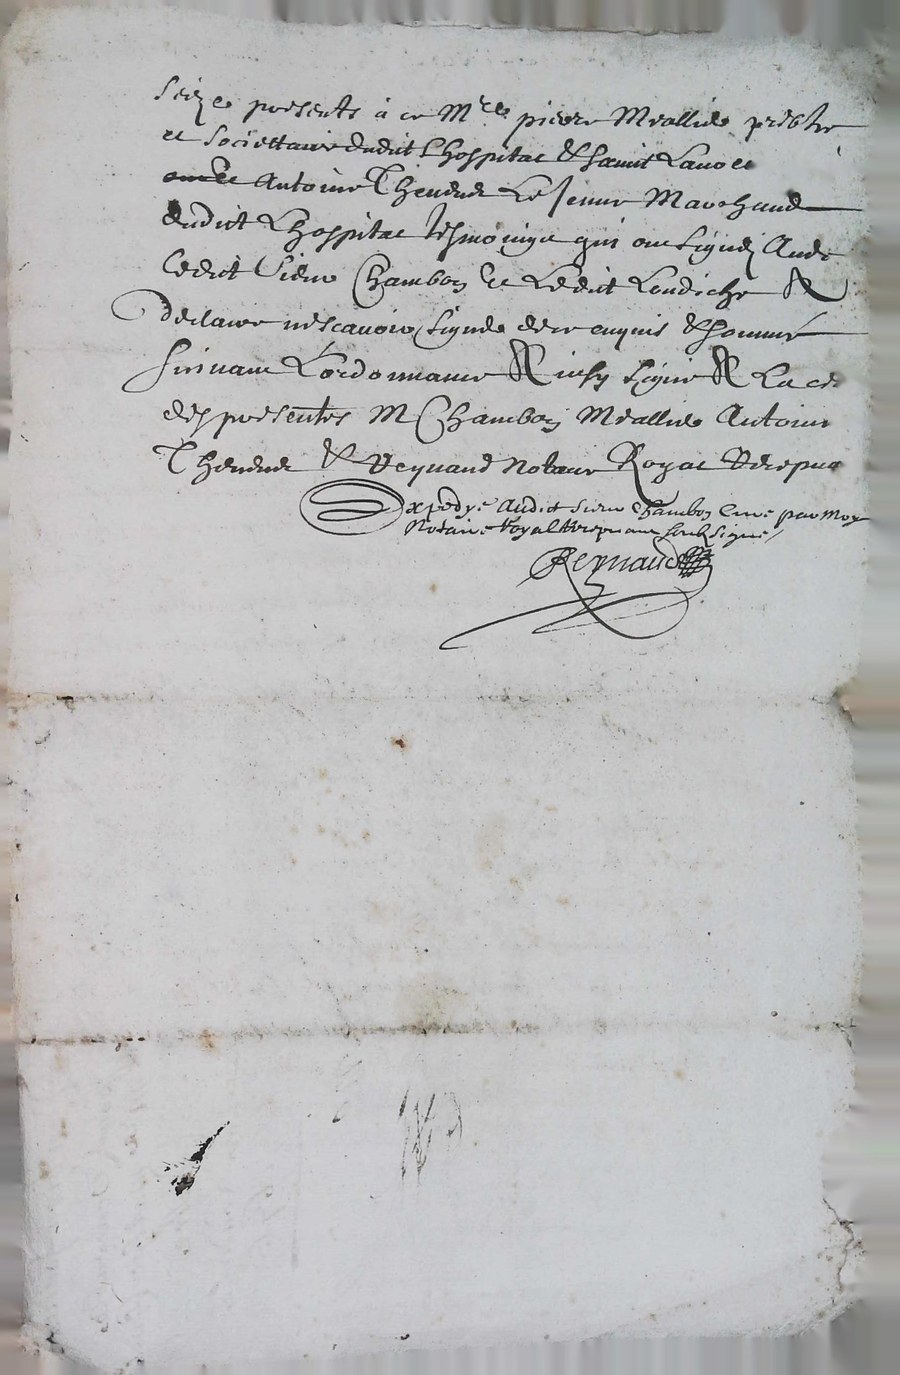 Seize presents à ce M.re pierre Meallie prebtre
et Societtaire dudit Lhospital & Saint
Antoine Thevenet Le Jeune Marchand
dudict Lhospital tesmoingz qui ont signéz Avec
Ledict Sieur Chambon et Ledict &
declaire nescavoir signer de ce enquis & sommé
suivant Lordonnance & insy signé & La ce
des presentes M Chambon Meallie Antoine
Thevenet & Reynaud Notaire Royal
Expedye Audict Sieur Chambon Curé par Moy
Notaire Royal soubsigné
Reynaud